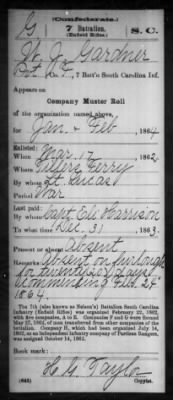 (Confederate.)
G 7 Battalion, S. C.
(Enfield Rifles.)
W. J. Gardner
Pvt, Co. F, 7 Batt'n South Carolina Inf.
Appears on
Company Muster Roll
of the organization named above,
for Jan & Feb, 1864.
Enlisted:
When Mar 17, 1862.
Where Ferry
By whom Lt. Lucas
Period War
Last paid:
By whom Capt. Eli Harrison
To what time Dec. 31, 1863.
Present or absent Absent
Remarks: Absent on furlough
for twenty four days
commencing Feb. 29"
1864.
The 7th (also known as Nelson's) Battalion South Carolina
Infantry (Enfield Rifles) was organized February 22, 1862,
with five companies, A to E. Companies F and G were formed
May 22, 1862, of men transferred from other companies of the
battalion. Company H, which had been organized July 14,
1862, as an independent infantry company of Partisan Rangers, was
assigned October 14, 1862.
Book mark:
H G Taylor
(642) Copyist.